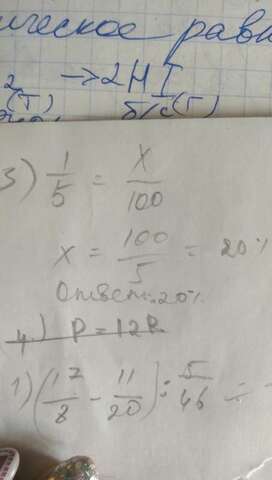 ическое равн
2(т) → 2HI
б/с(г)
3) 1/5 = x/100
x = 100/5 = 20%
Ответ: 20%
4.) P = 12R
1) (17/8 - 11/20) : 5/46 =